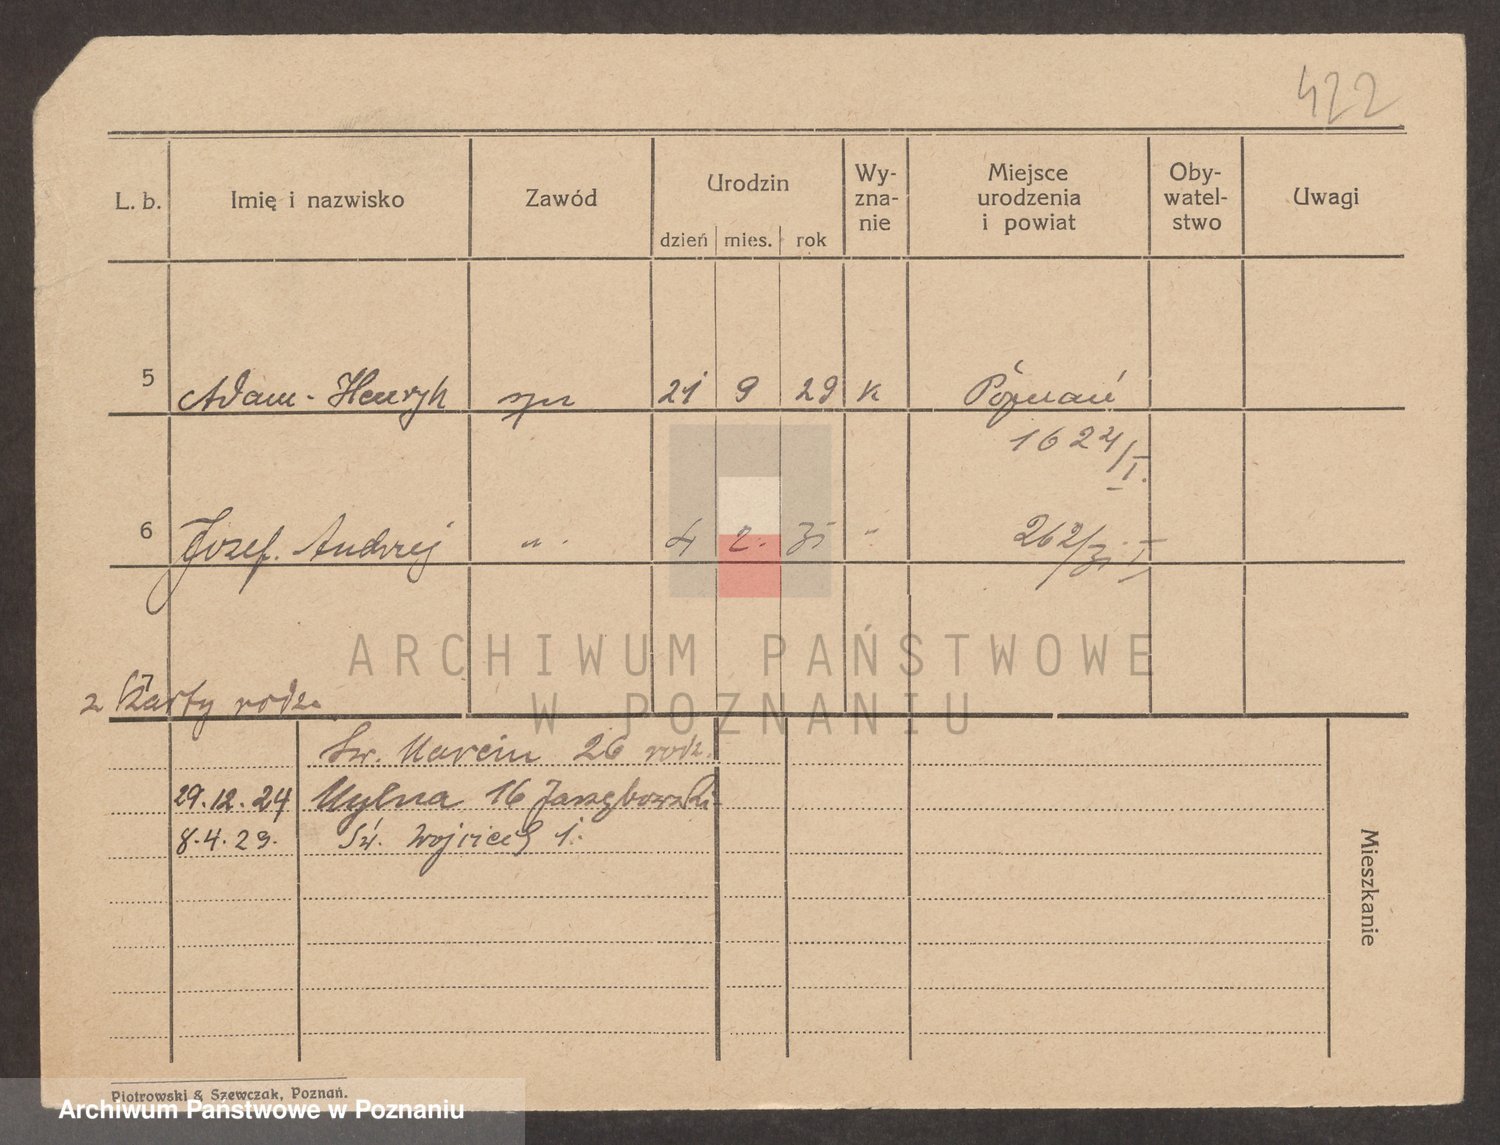 422
L. b. Imię i nazwisko Zawód Urodzin dzień mies. rok Wy-zna-nie Miejsce urodzenia i powiat Oby-watel-stwo Uwagi
5 Adam-Henryk syn 21 9 29 K Poznań
1624/I.
6 Józef. Andrzej -"- 4 2. 31 " 262/31 I
7
z Karty rodz.
Św. Marcin 26 rodz.
29.12.24 Mylna 16
8.4.29. Św. Wojciech 1.
Mieszkanie
Piotrowski & Szewczak, Poznań.
ARCHIWUM PAŃSTWOWE
W POZNANIU
Archiwum Państwowe w Poznaniu